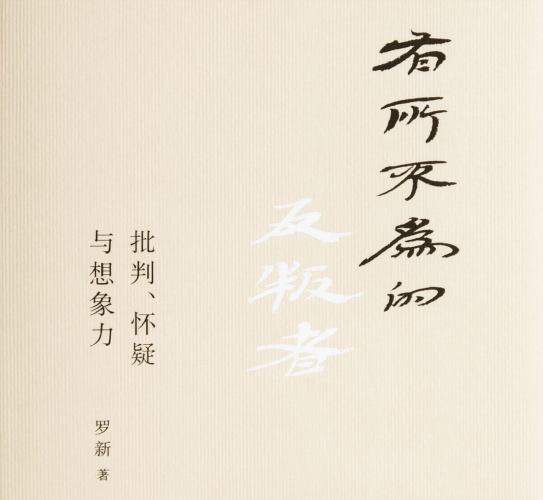 有所不為的
反叛者
批判、怀疑
与想象力
罗新 著